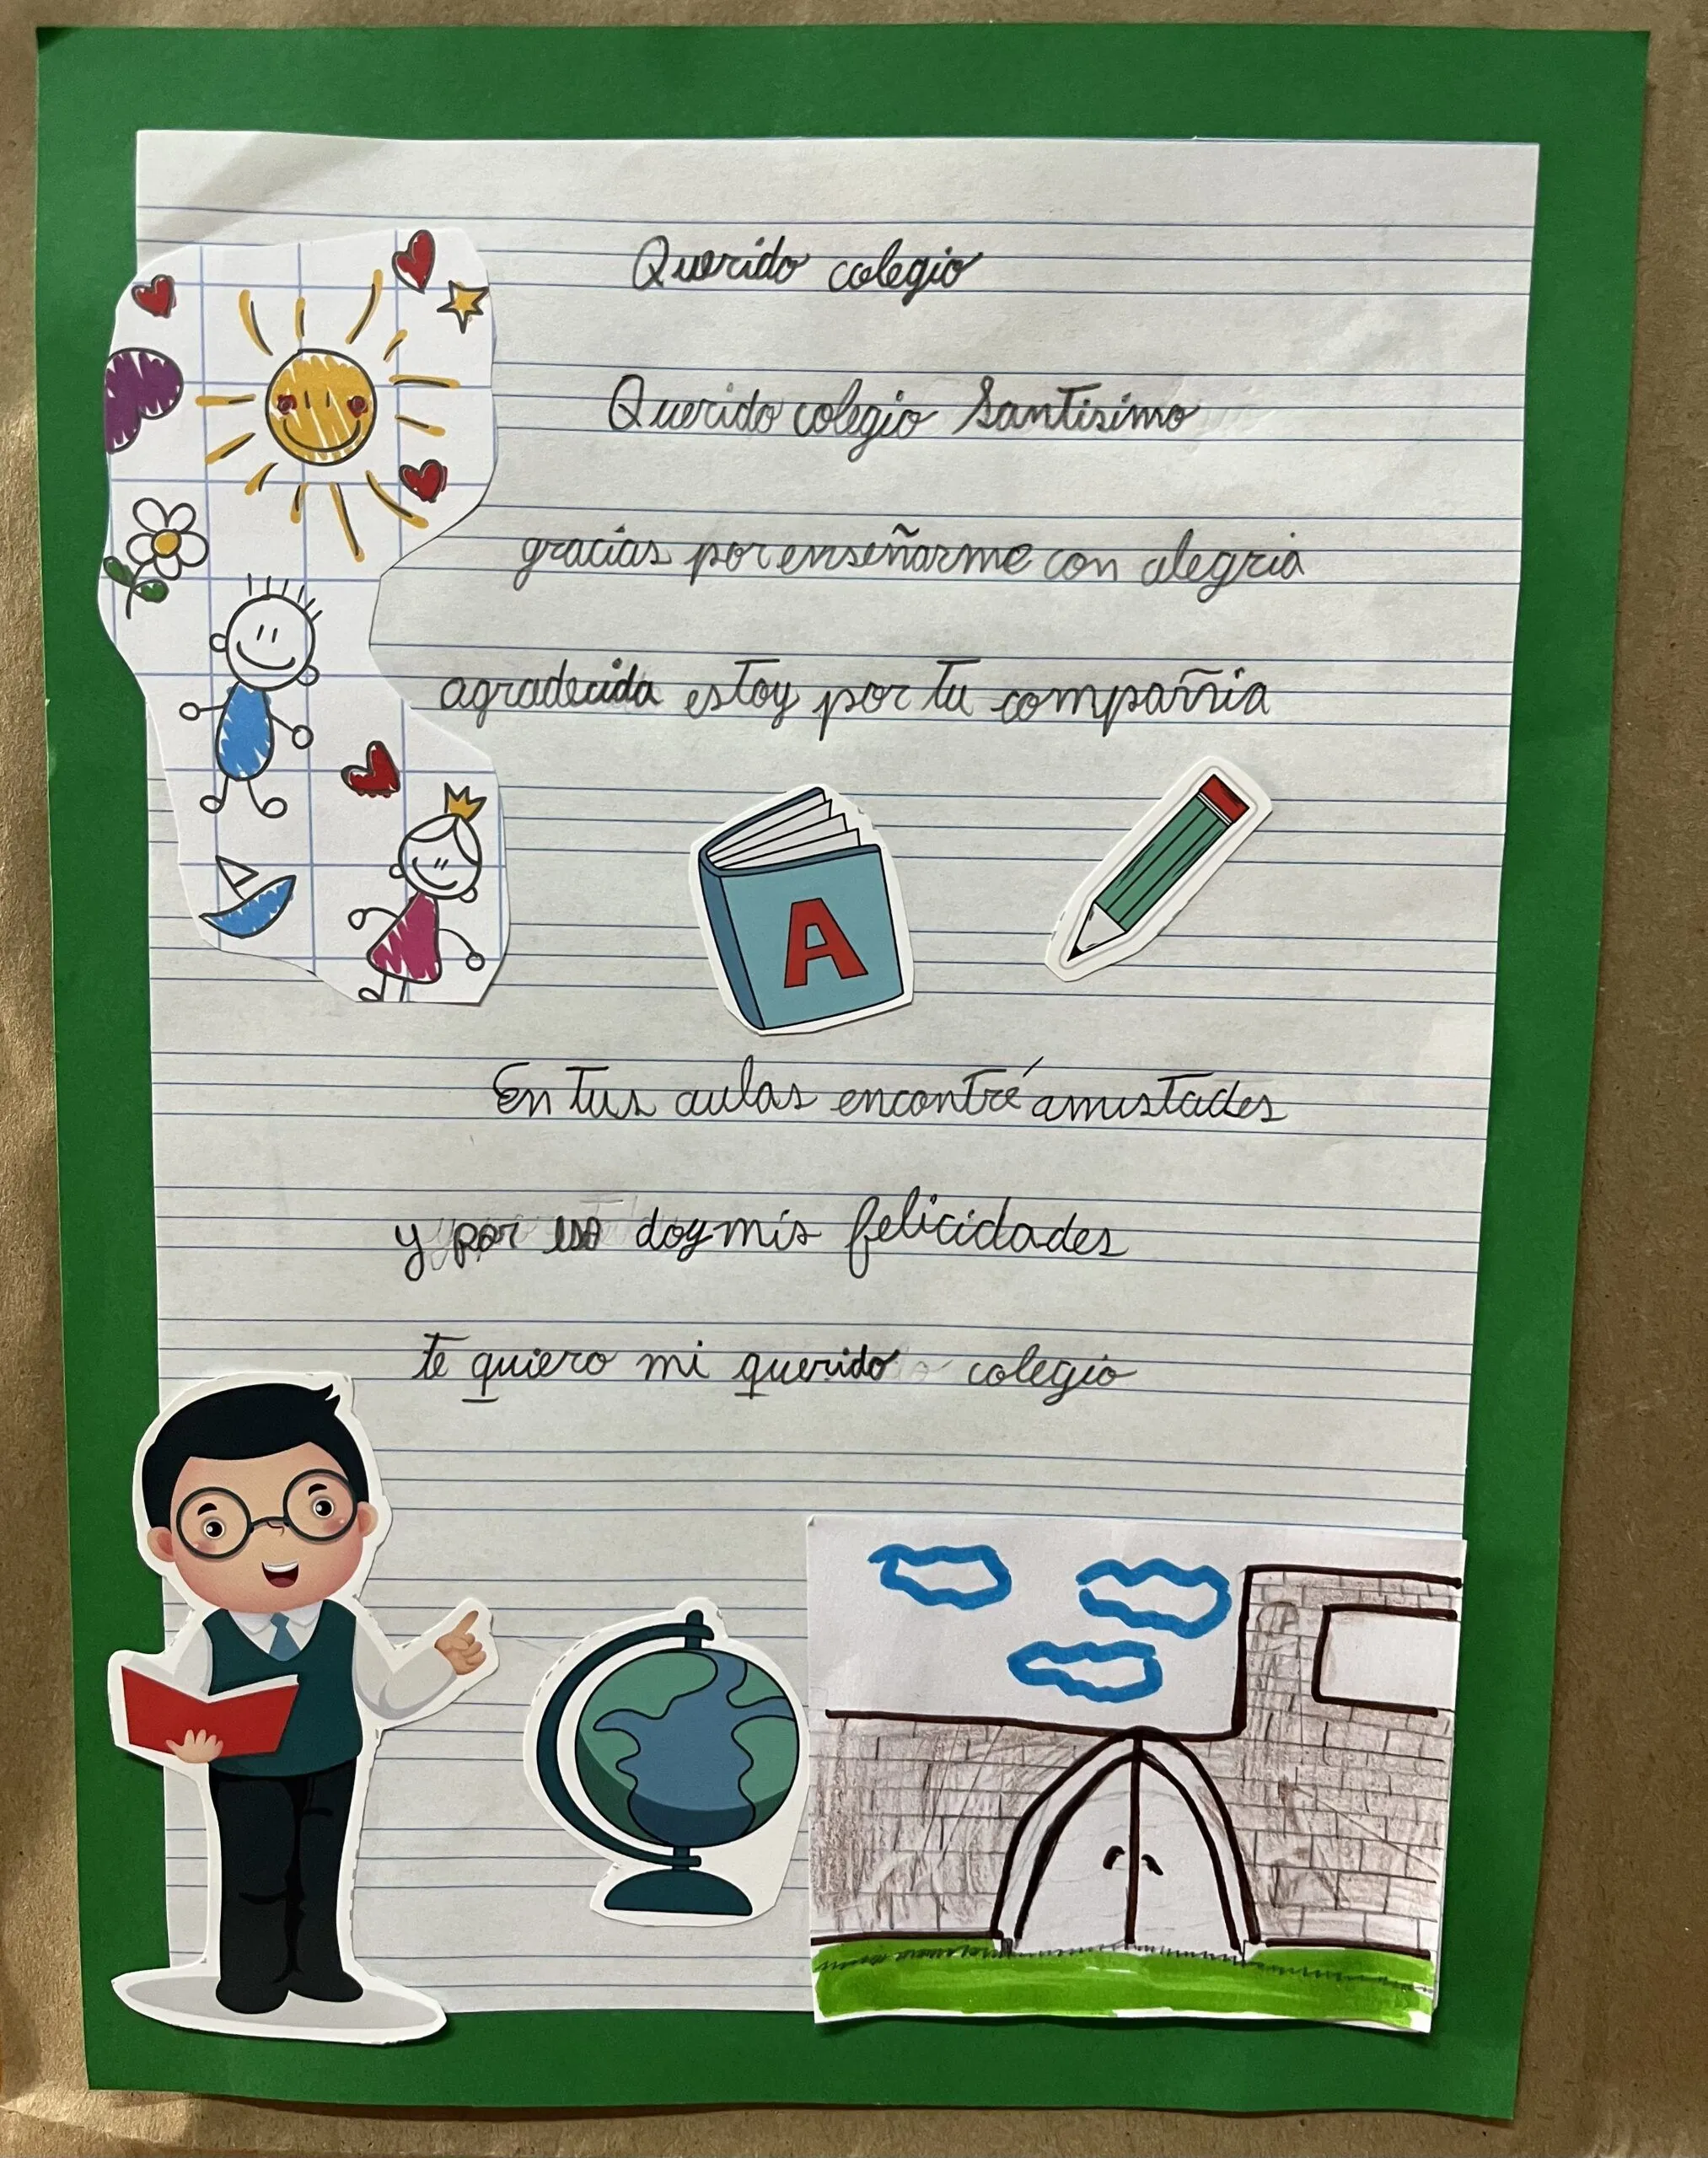 Querido colegio
Querido colegio Santisimo
gracias por enseñarme con alegria
agradecida estoy por tu compañia
A
En tus aulas encontré amistades
y por eso doy mis felicidades
te quiero mi querido colegio